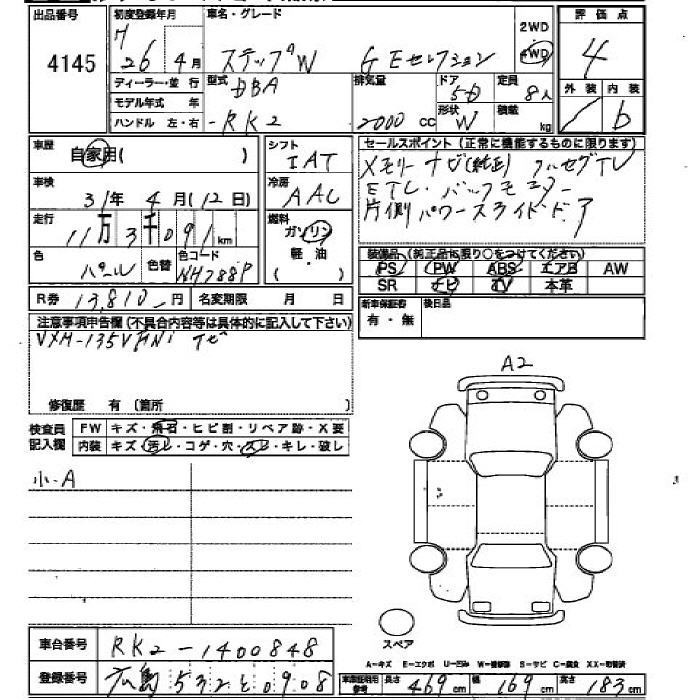 出品番号 初度登録年月 車名・グレード 2WD 評価点
4145 26年 4月 ステップW GEセレクション 4WD 4
ディーラー・並行 型式 DBA 排気量 ドア 5D 定員 8人 外装 内装
モデル年式 年 形状 積載
ハンドル 左・右 -RK2 2000cc W kg b
車歴 自家用( ) シフト IAT セールスポイント(正常に機能するものに限ります)
メモリーナビ(純正) フルセグTV
車検 31年 4月(12日) 冷房 AAC ETC・バックモニター
片側パワースライドドア
走行 11万3千091km 燃料 ガソリン
軽・油
( )
色 パール 色替 色コード NH788P 装備品(純正品に限り○をつけてください)
PS PW ABS エアB AW
SR ナビ TV 本革
R券 13,810円 名変期限 月 日 新車保証書 後日品
有・無
注意事項申告欄(不具合内容等は具体的に記入して下さい)
VXM-135VFNi ナビ
修復歴 有(箇所 ) A2
検査員 FW キズ・飛石・ヒビ割・リペア跡・X要
記入欄 内装 キズ・汚レ・コゲ・穴・スレ・キレ・破レ
小-A
スペア
車台番号 RK2-1400848
A-キズ E-エクボ U-凹み W-補修跡 S-サビ C-腐食 XX-取替済
登録番号 広島 532 と 0908 車庫証明用参考 長さ 469cm 幅 169cm 高さ 183cm